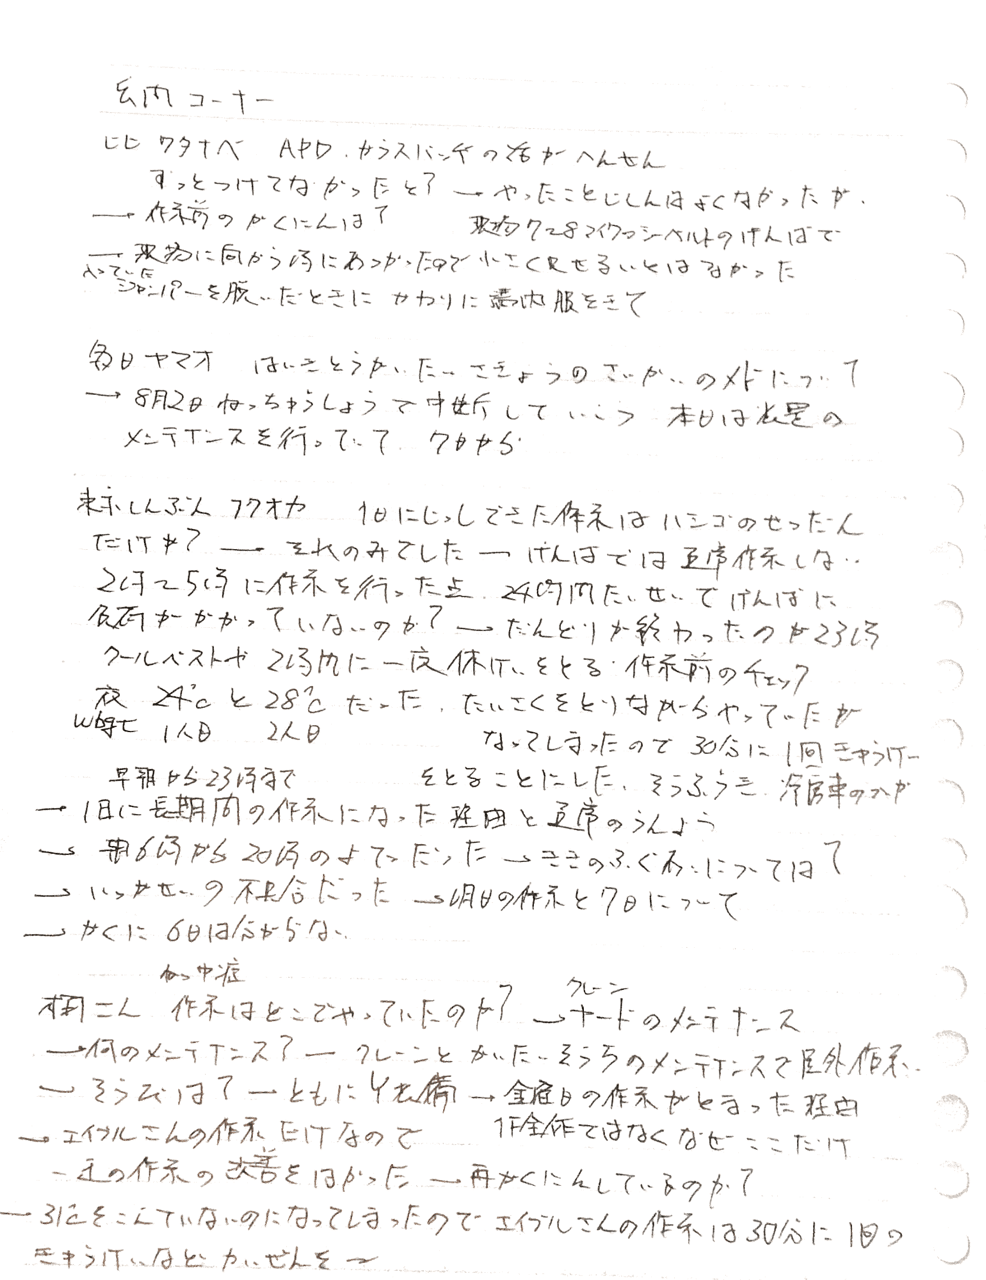 コーナー
ワタナベ APD.ガラスバッチの話がへんせん
ずっとつけてなかったと? → やったことじしんはよくなかったが.
→ 作業前のかくにんは? 7~8マイクロシーベルトのげんばで
→ 現場に向かう時にあつかったので小さく見せるいとはなかった
ジャンパーを脱いだときにかわりに構内服をきて
毎日ヤマオ はいきとうかいたいさぎょうのさいかいのメドについて?
→ 8月2日ねっちゅうしょうで中断していこう 本日は装置の
メンテナンスを行っていて 7日から
東京しんぶん フクオカ 1日にじっしできた作業はハシゴのせつだん
だけか? → それのみでした → げんばでは通常作業しない
2時~5時に作業を行った点.24時間たいせいでげんばに
負荷がかかっていないのか? → だんどりが終わったのが23時
クールベストや2時間に一度休けいをとる 作業前のチェック
夜 24℃と28℃だった.たいさくをとりながらやっていたが
wbgt 1人目 2人目 なってしまったので30分に1回きゅうけー
早朝から23時まで をとることにした.そうふうき.冷房車の
→ 1日に長期間の作業になった理由と通常のうんよう
→ 朝6時から20時のよていだった → ききのふぐあいについては?
→ いっかせいの不具合だった → 明日の作業と7日について
→ かくに 6日は分からない
ねっ中症
さん 作業はどこでやっていたのか? → クレーンヤードのメンテナンス
→ 何のメンテナンス? → クレーンとかいたいそうちのメンテナンスで屋外作業.
→ そうびは? → ともにY装備 → 金曜日の作業がとまった理由
→ エイブルさんの作業だけなので 全作ではなくなぜここだけ
の作業の改善をはかった → 再かくにんしているのか?
→ 31℃をこえていないのになってしまったのでエイブルさんの作業は30分に1回の
きゅうけいなどかいぜんを~